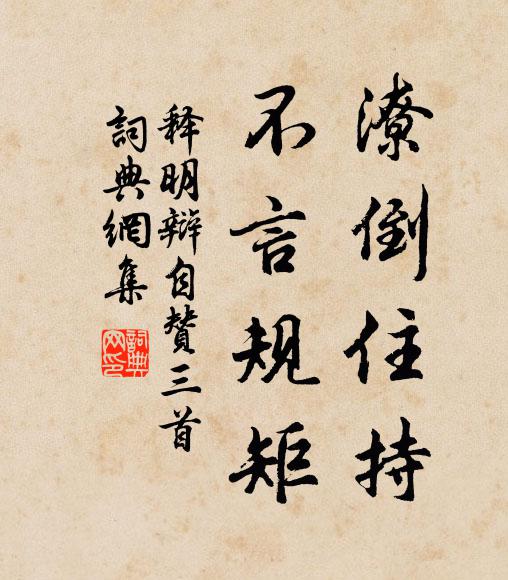 潦倒住持
不言規矩
释明辯自赞三首
詞典網集
詞典
网印